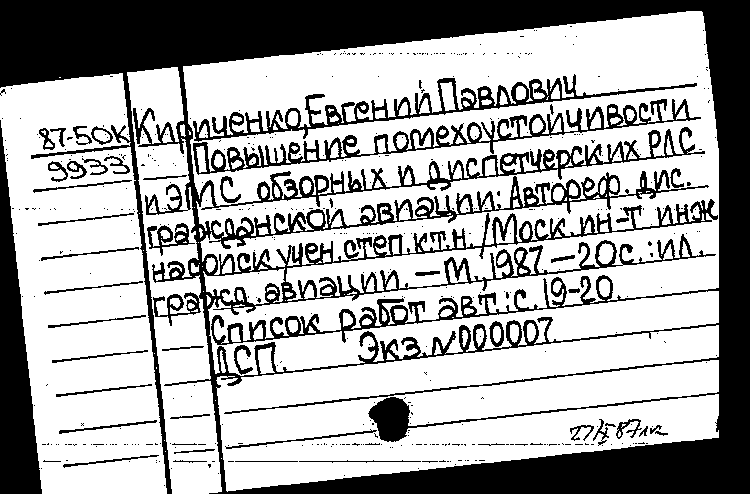 87-50К
9933
Кириченко, Евгений Павлович.
Повышение помехоустойчивости
и ЭМС обзорных и диспетчерских РЛС
гражданской авиации: Автореф. дис.
на соиск. учен. степ. к.т.н. /Моск. ин-т инж
гражд. авиации. — М., 1987. — 20с. : ил.
Список работ авт.: с. 19-20.
ДСП. Экз. N000007